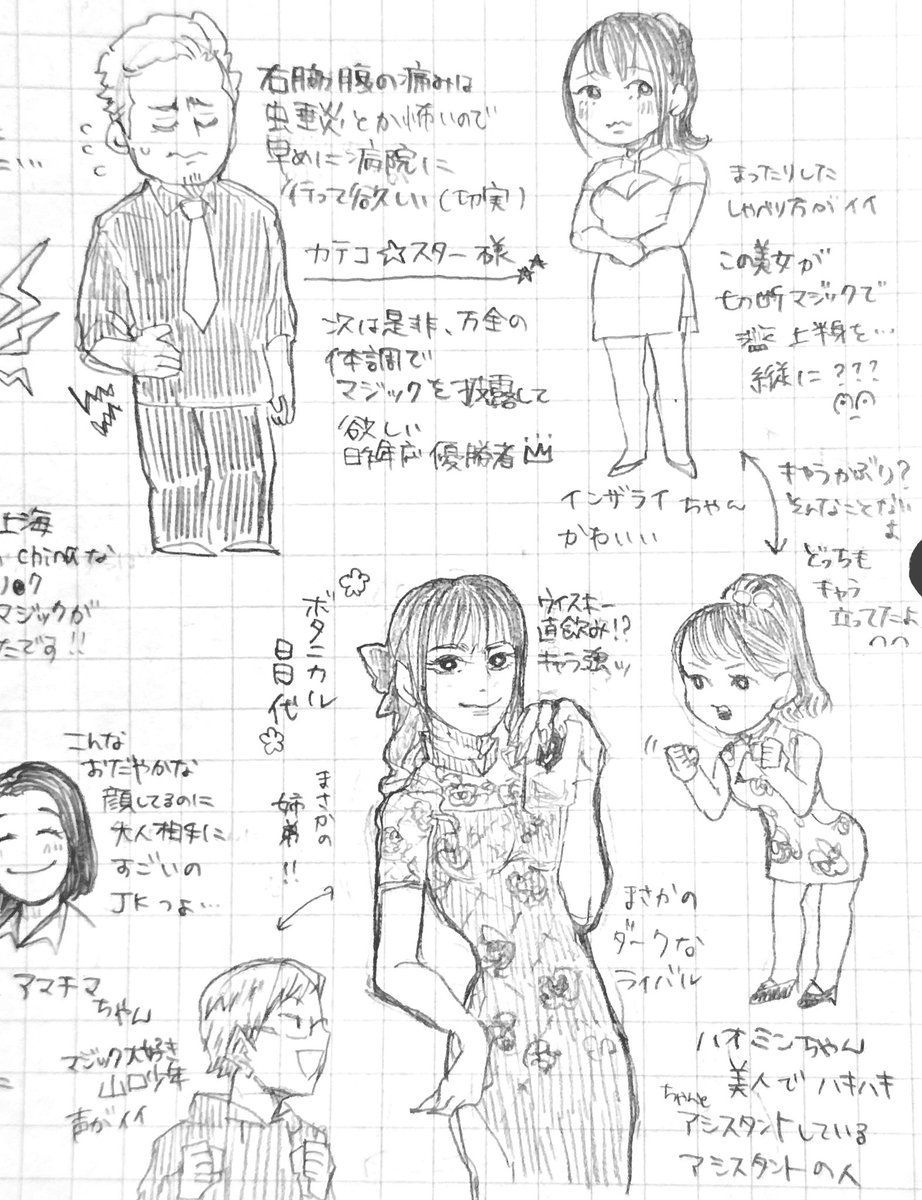 右脇腹の痛みは
虫垂炎とか怖いので
早めに病院に
行って欲しい(切実)
カテコ☆スター様
次は是非、万全の
体調で
マジックを披露して
欲しい
昨年度優勝者
まったりした
しゃべり方がイイ
この美女が
切断マジックで
上半身を…
縦に???
インザライちゃん
かわいい
キャラかぶり?
そんなことない
よ
どっちも
キャラ
立ってたよ
上海
chinaな
マジックが
たです!!
ボタニカル
日日代
ウイスキー
直飲み!?
キャラ強ッ
こんな
おだやかな
顔してるのに
大人相手に
すごいの
JKつよ…
まさかの
姉弟!!
まさかの
ダークな
ライバル
アマチマ
ちゃん
マジック大好き
山口少年
声がイイ
ハオミンちゃん
美人でハキハキ
ちゃんと
アシスタントしている
アシスタントの人